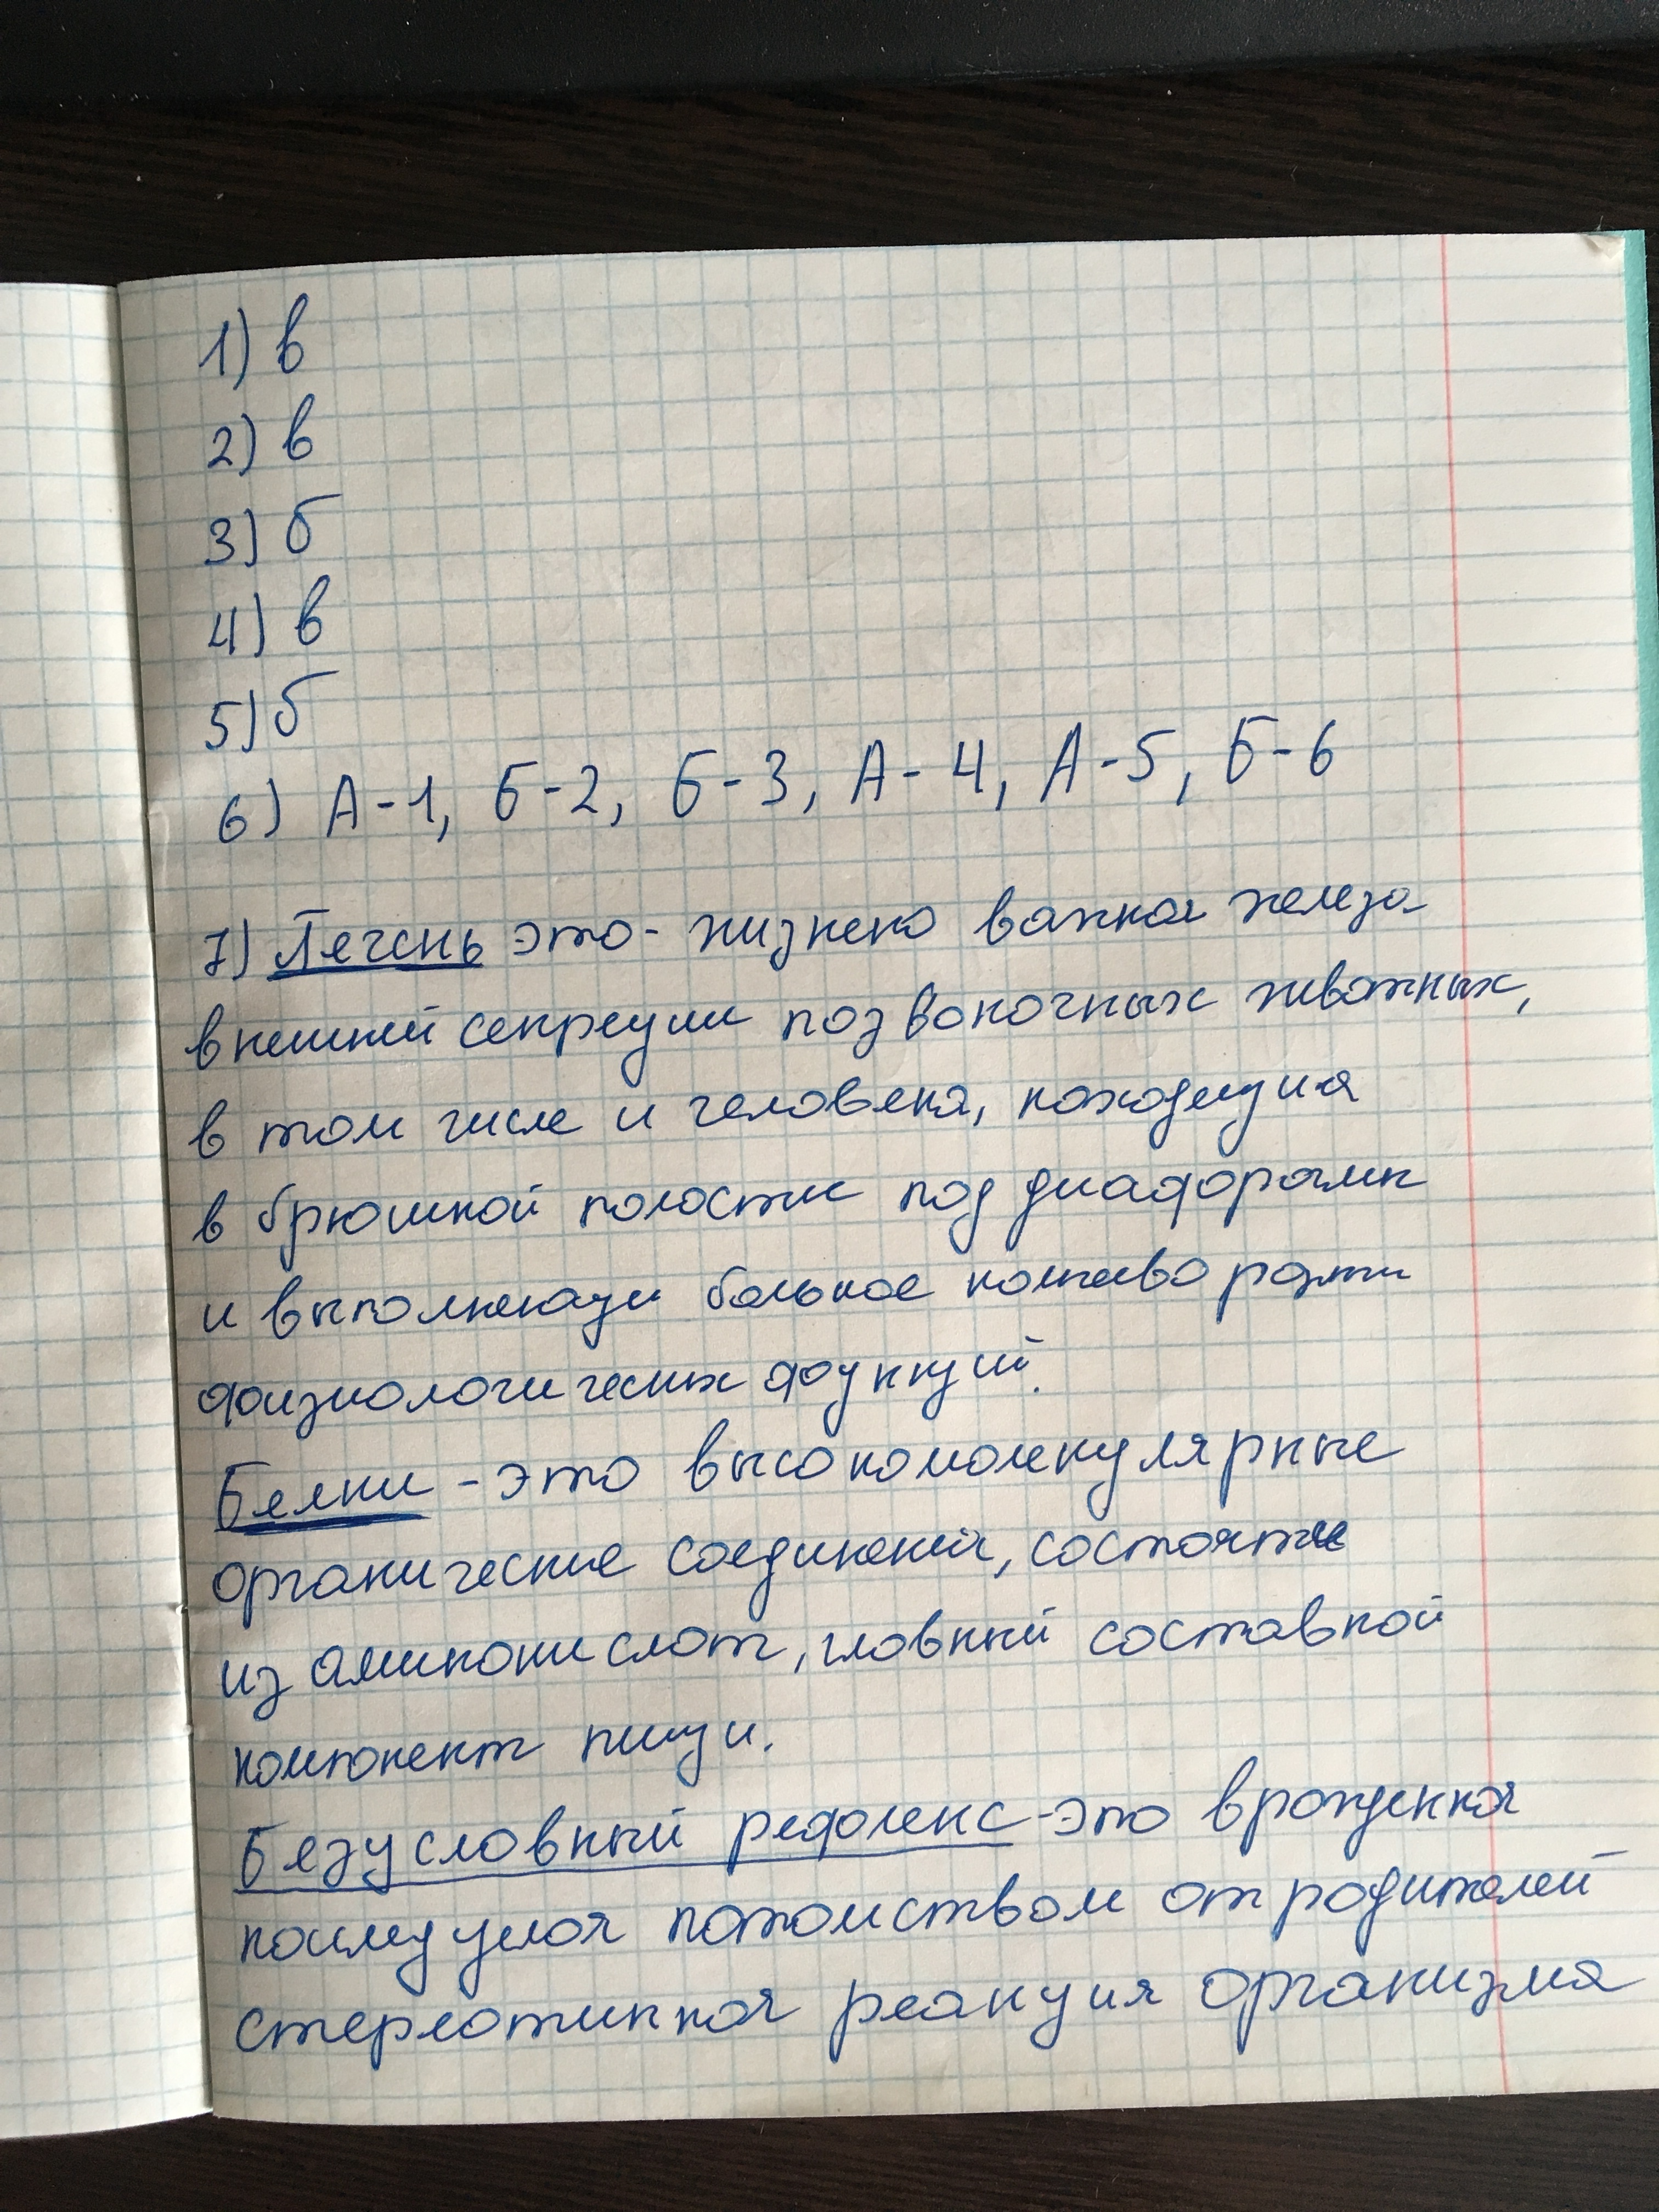 1) в
2) в
3) б
4) в
5) б
6) А-1, Б-2, Б-3, А-4, А-5, Б-6
7) Печень это- жизнено важная железа
внешней секреции позвоночных животных,
в том числе и человека, находящиа
в брюшной полости под диафорагми
и выполнеющи больное
физиологических функций.
Белки - это высокомолекулярные
органические соединений, состояти
из аминокислот, гловный составной
компонент пищи.
Безусловный рефлекс-это врожденная
потомством от родителей
стереотипная реакция организма